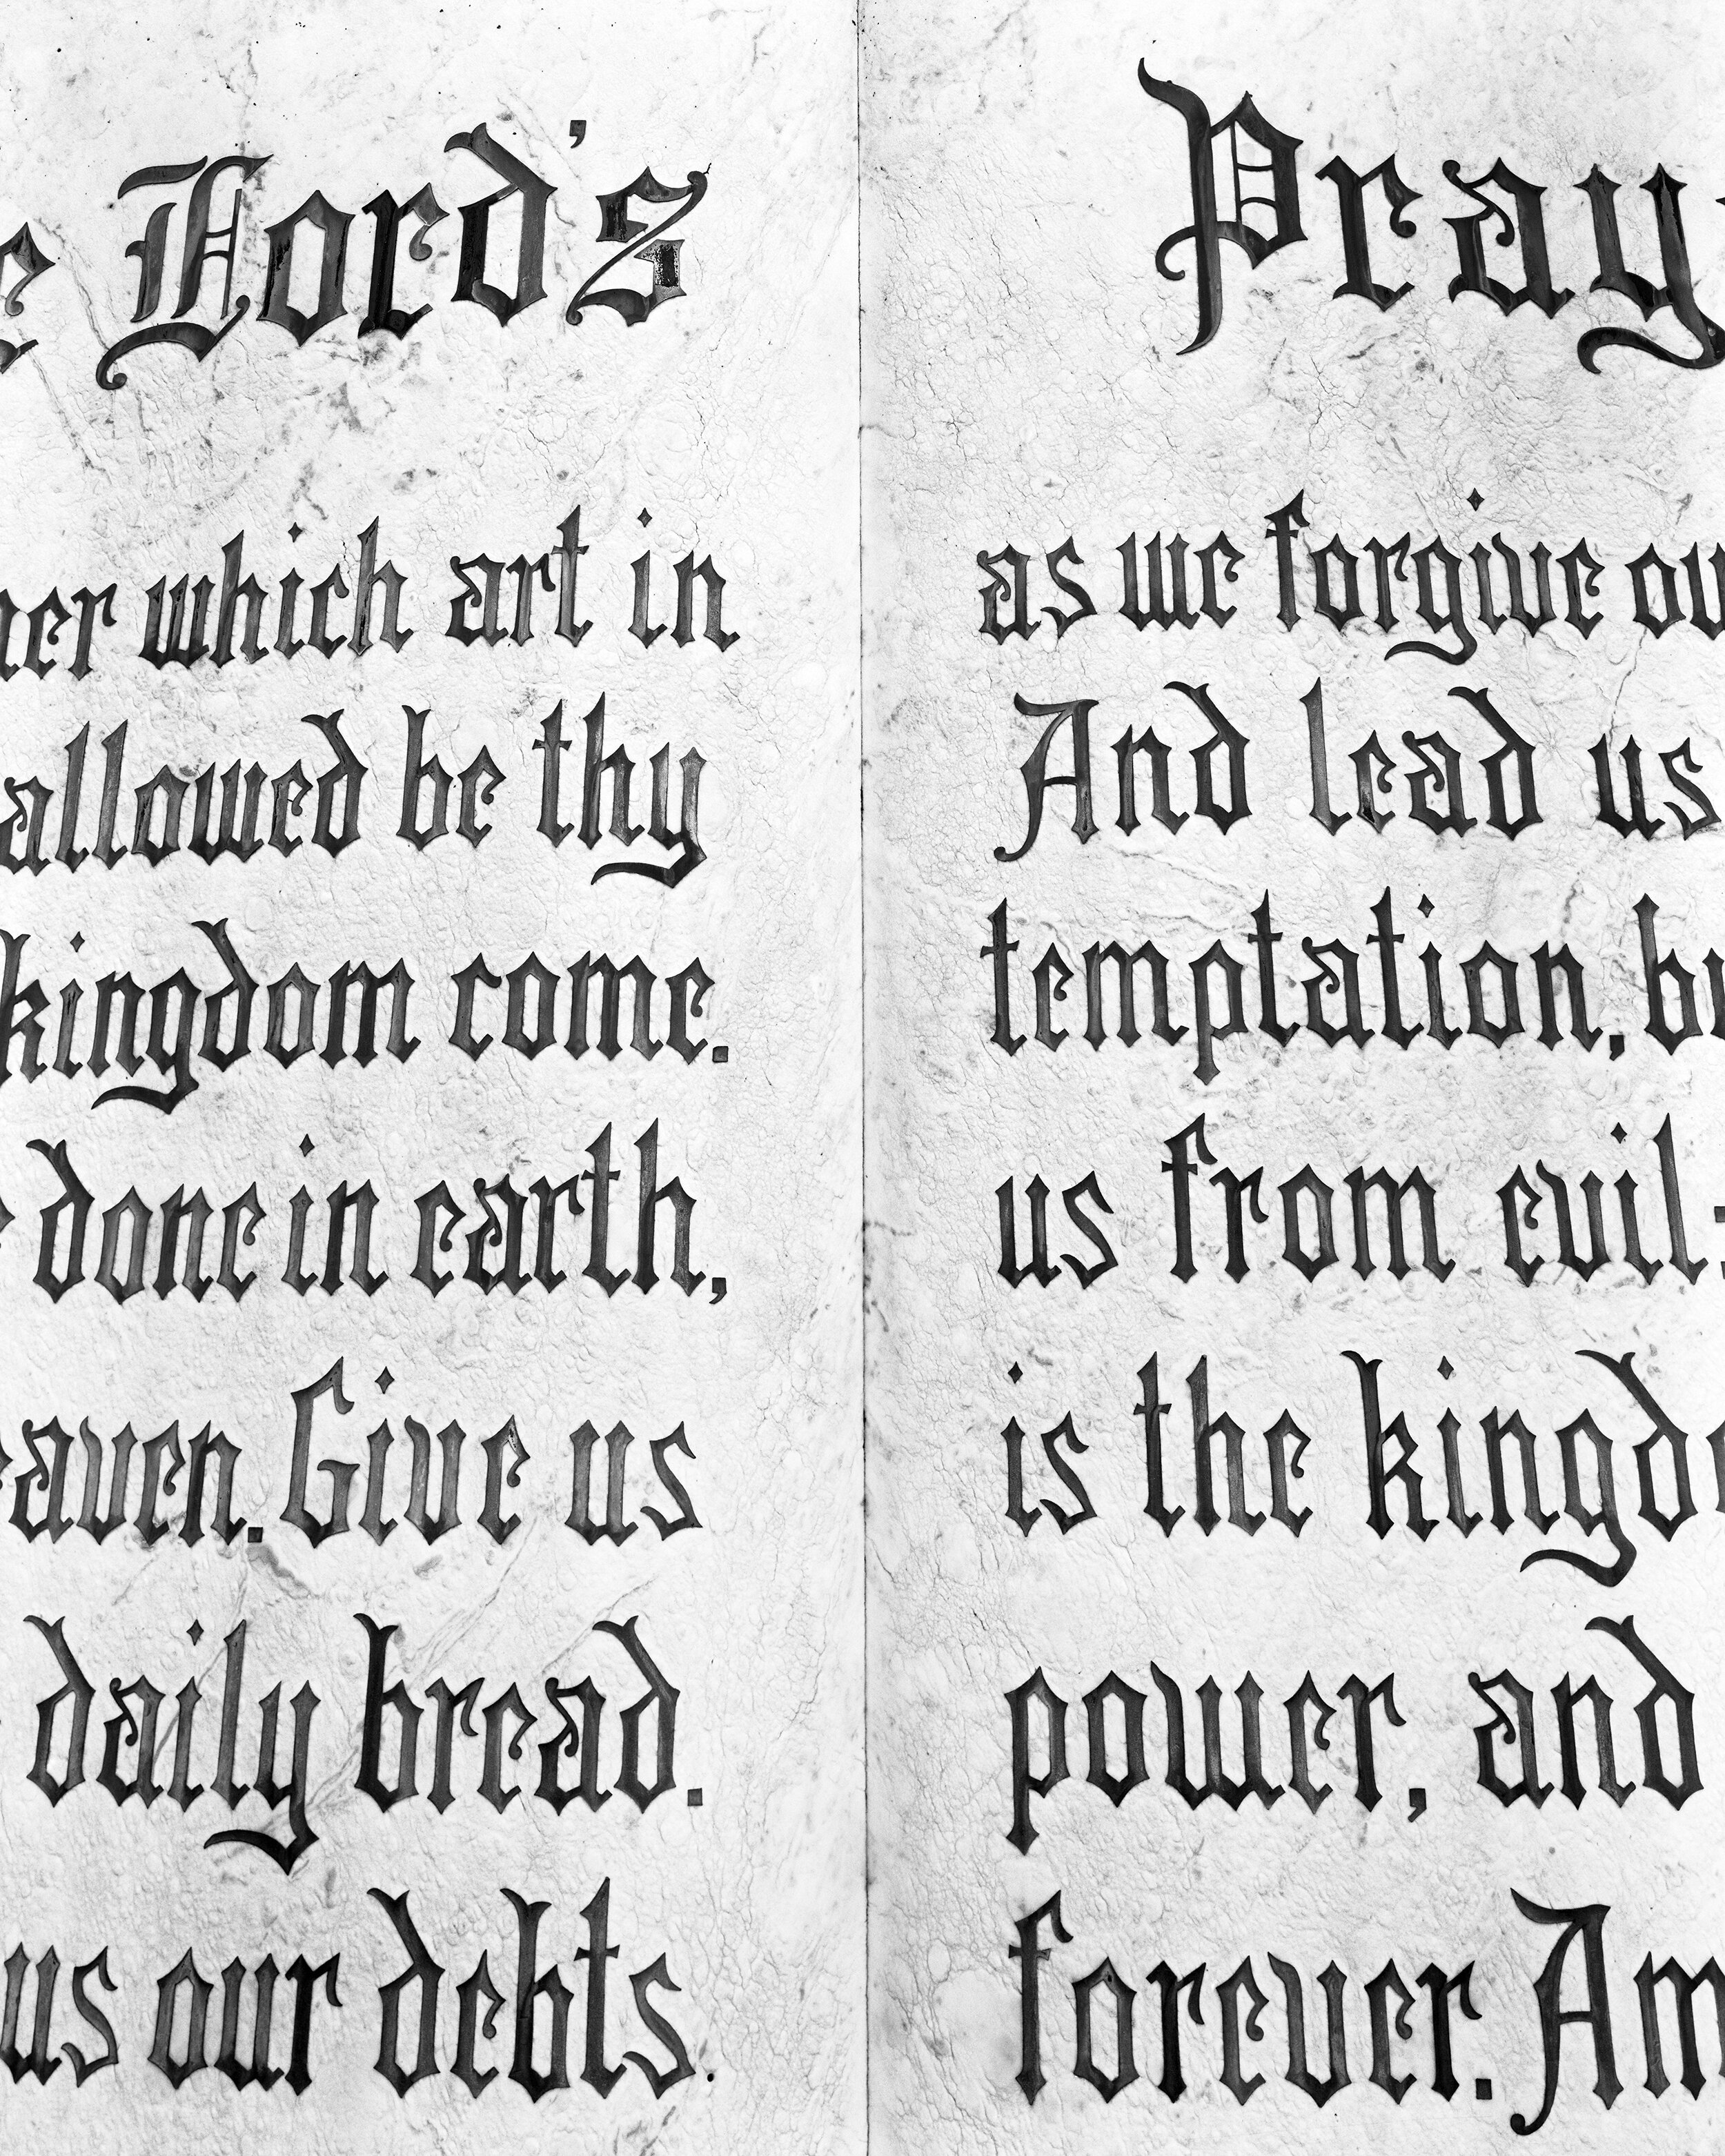 e Lord's
her which art in
allowed be thy
kingdom come.
e done in earth,
eaven. Give us
daily bread.
us our debts.
Pray
as we forgive ou
And lead us
temptation, bu
us from evil:
is the kingdo
power, and
forever. Am